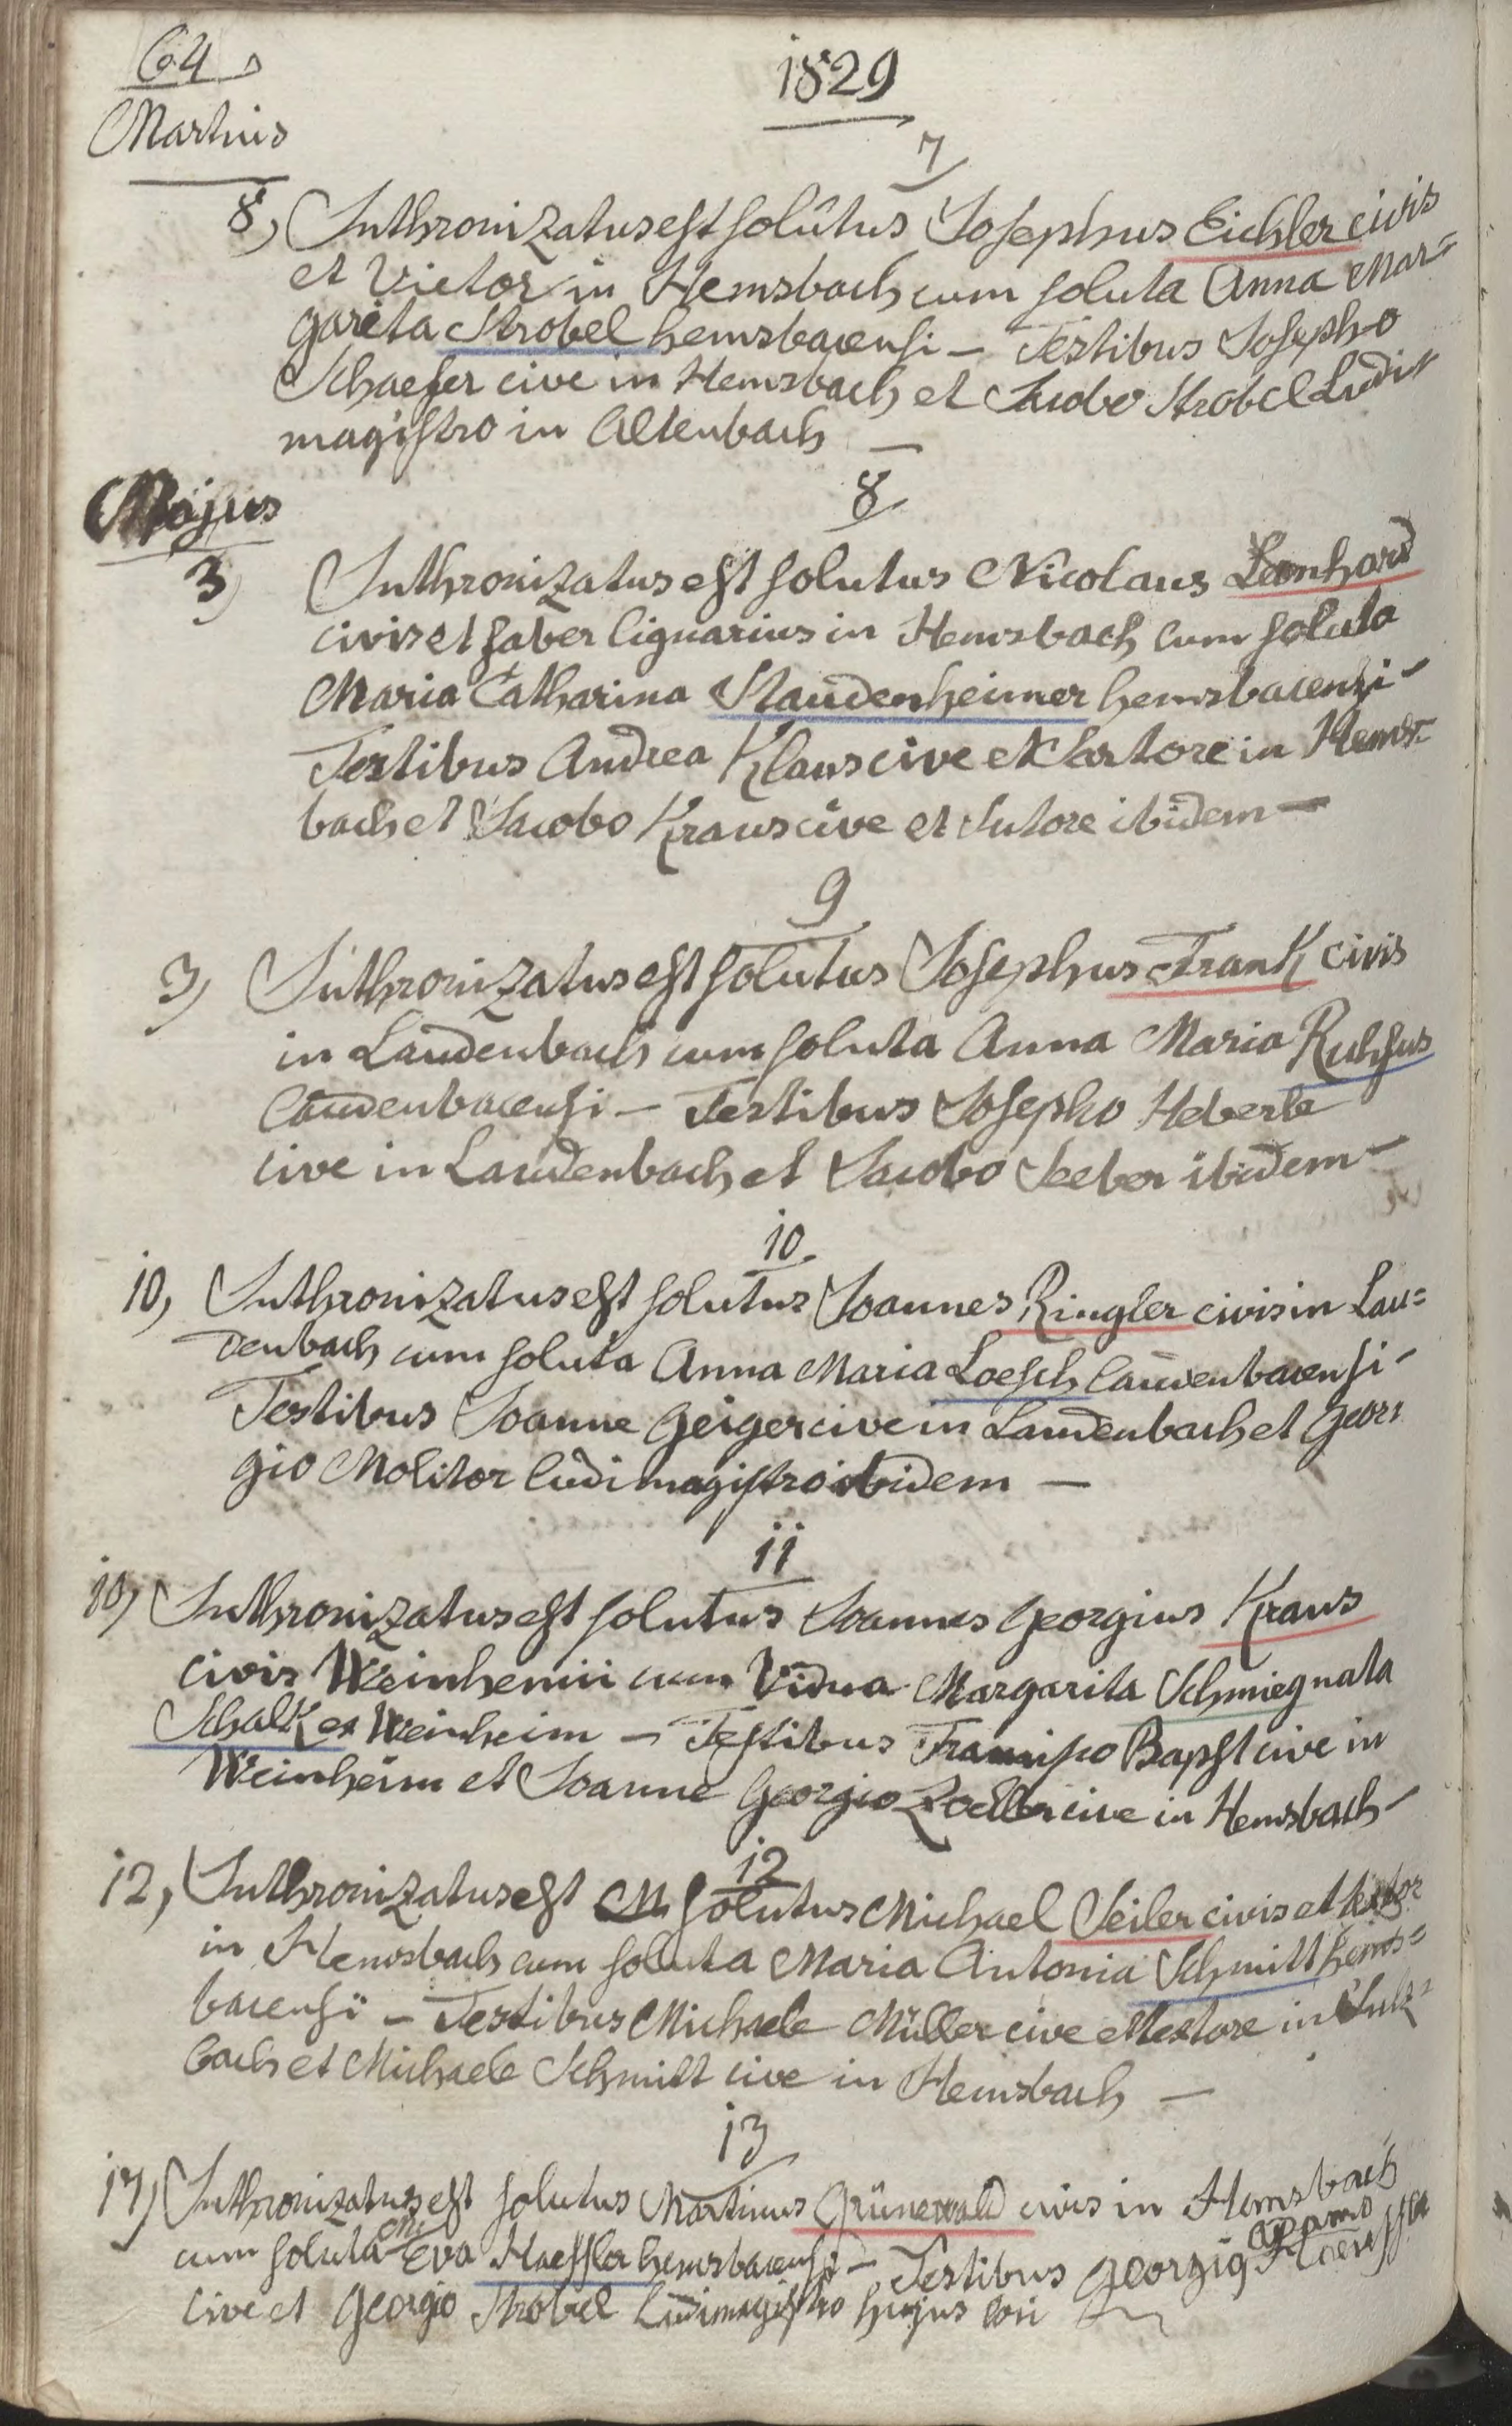 64
1829
Martius
7
8, Inthronizatus est solûtus Josephus Eichler civis
et Vietor in Hemsbach cum soluta Anna Mar=
garêta Strobel hemsbacensi – Testibus Josepho
Schaefer cive in Hemsbach et Jacobo Strobel Ludi=
magistro in Altenbach —
8
Majus
3) Inthronizatus est solutus Nicolaus Leonhard
civis et faber lignarius in Hemsbach cum soluta
Maria Catharina Staudenheimer hemsbacensi –
Testibus Andrea Klaus cive et Sartore in Hems=
bach et Jacobo Kraus cive et Sutore ibidem —
9
3) Inthronizatus est solutus Josephus Frank civis
in Laudenbach cum soluta Anna Maria Ruhfus
laudenbacensi – Testibus Josepho Heberle
cive in Laudenbach et Jacobo Seeber ibidem –
10
10, Inthronizatus est solutus Joannes Ringler civis in Lau=
denbach cum soluta Anna Maria Loesch laudenbacensi –
Testibus Joanne Geiger cive in Laudenbach et Geor=
gio Molitor ludimagistro ibidem —
11
10, Inthronizatus est solutus Joannes Georgius Kraus
civis Weinhemii cum Vidua Margarita Schmieg nata
Schalk ex Weinheim – Testibus Francisco Bapst cive in
Weinheim et Joanne Georgio Zoeller cive in Hemsbach –
12
12, Inthronizatus est M solutus Michael Seiler civis et textor
in Hemsbach cum soluta Maria Antonia Schmitt hems=
bacensi – Testibus Michaele Müller cive et textore in Sulz=
bach et Michaele Schmitt cive in Hemsbach —
13
17) Inthronizatus est solutus Martinus Grünewald civis in Hemsbach
cum soluta Eva Haeffler hemsbacensi – Testibus Georgio Adamo
cive et Georgio Strobel Ludimagistro hujus loci